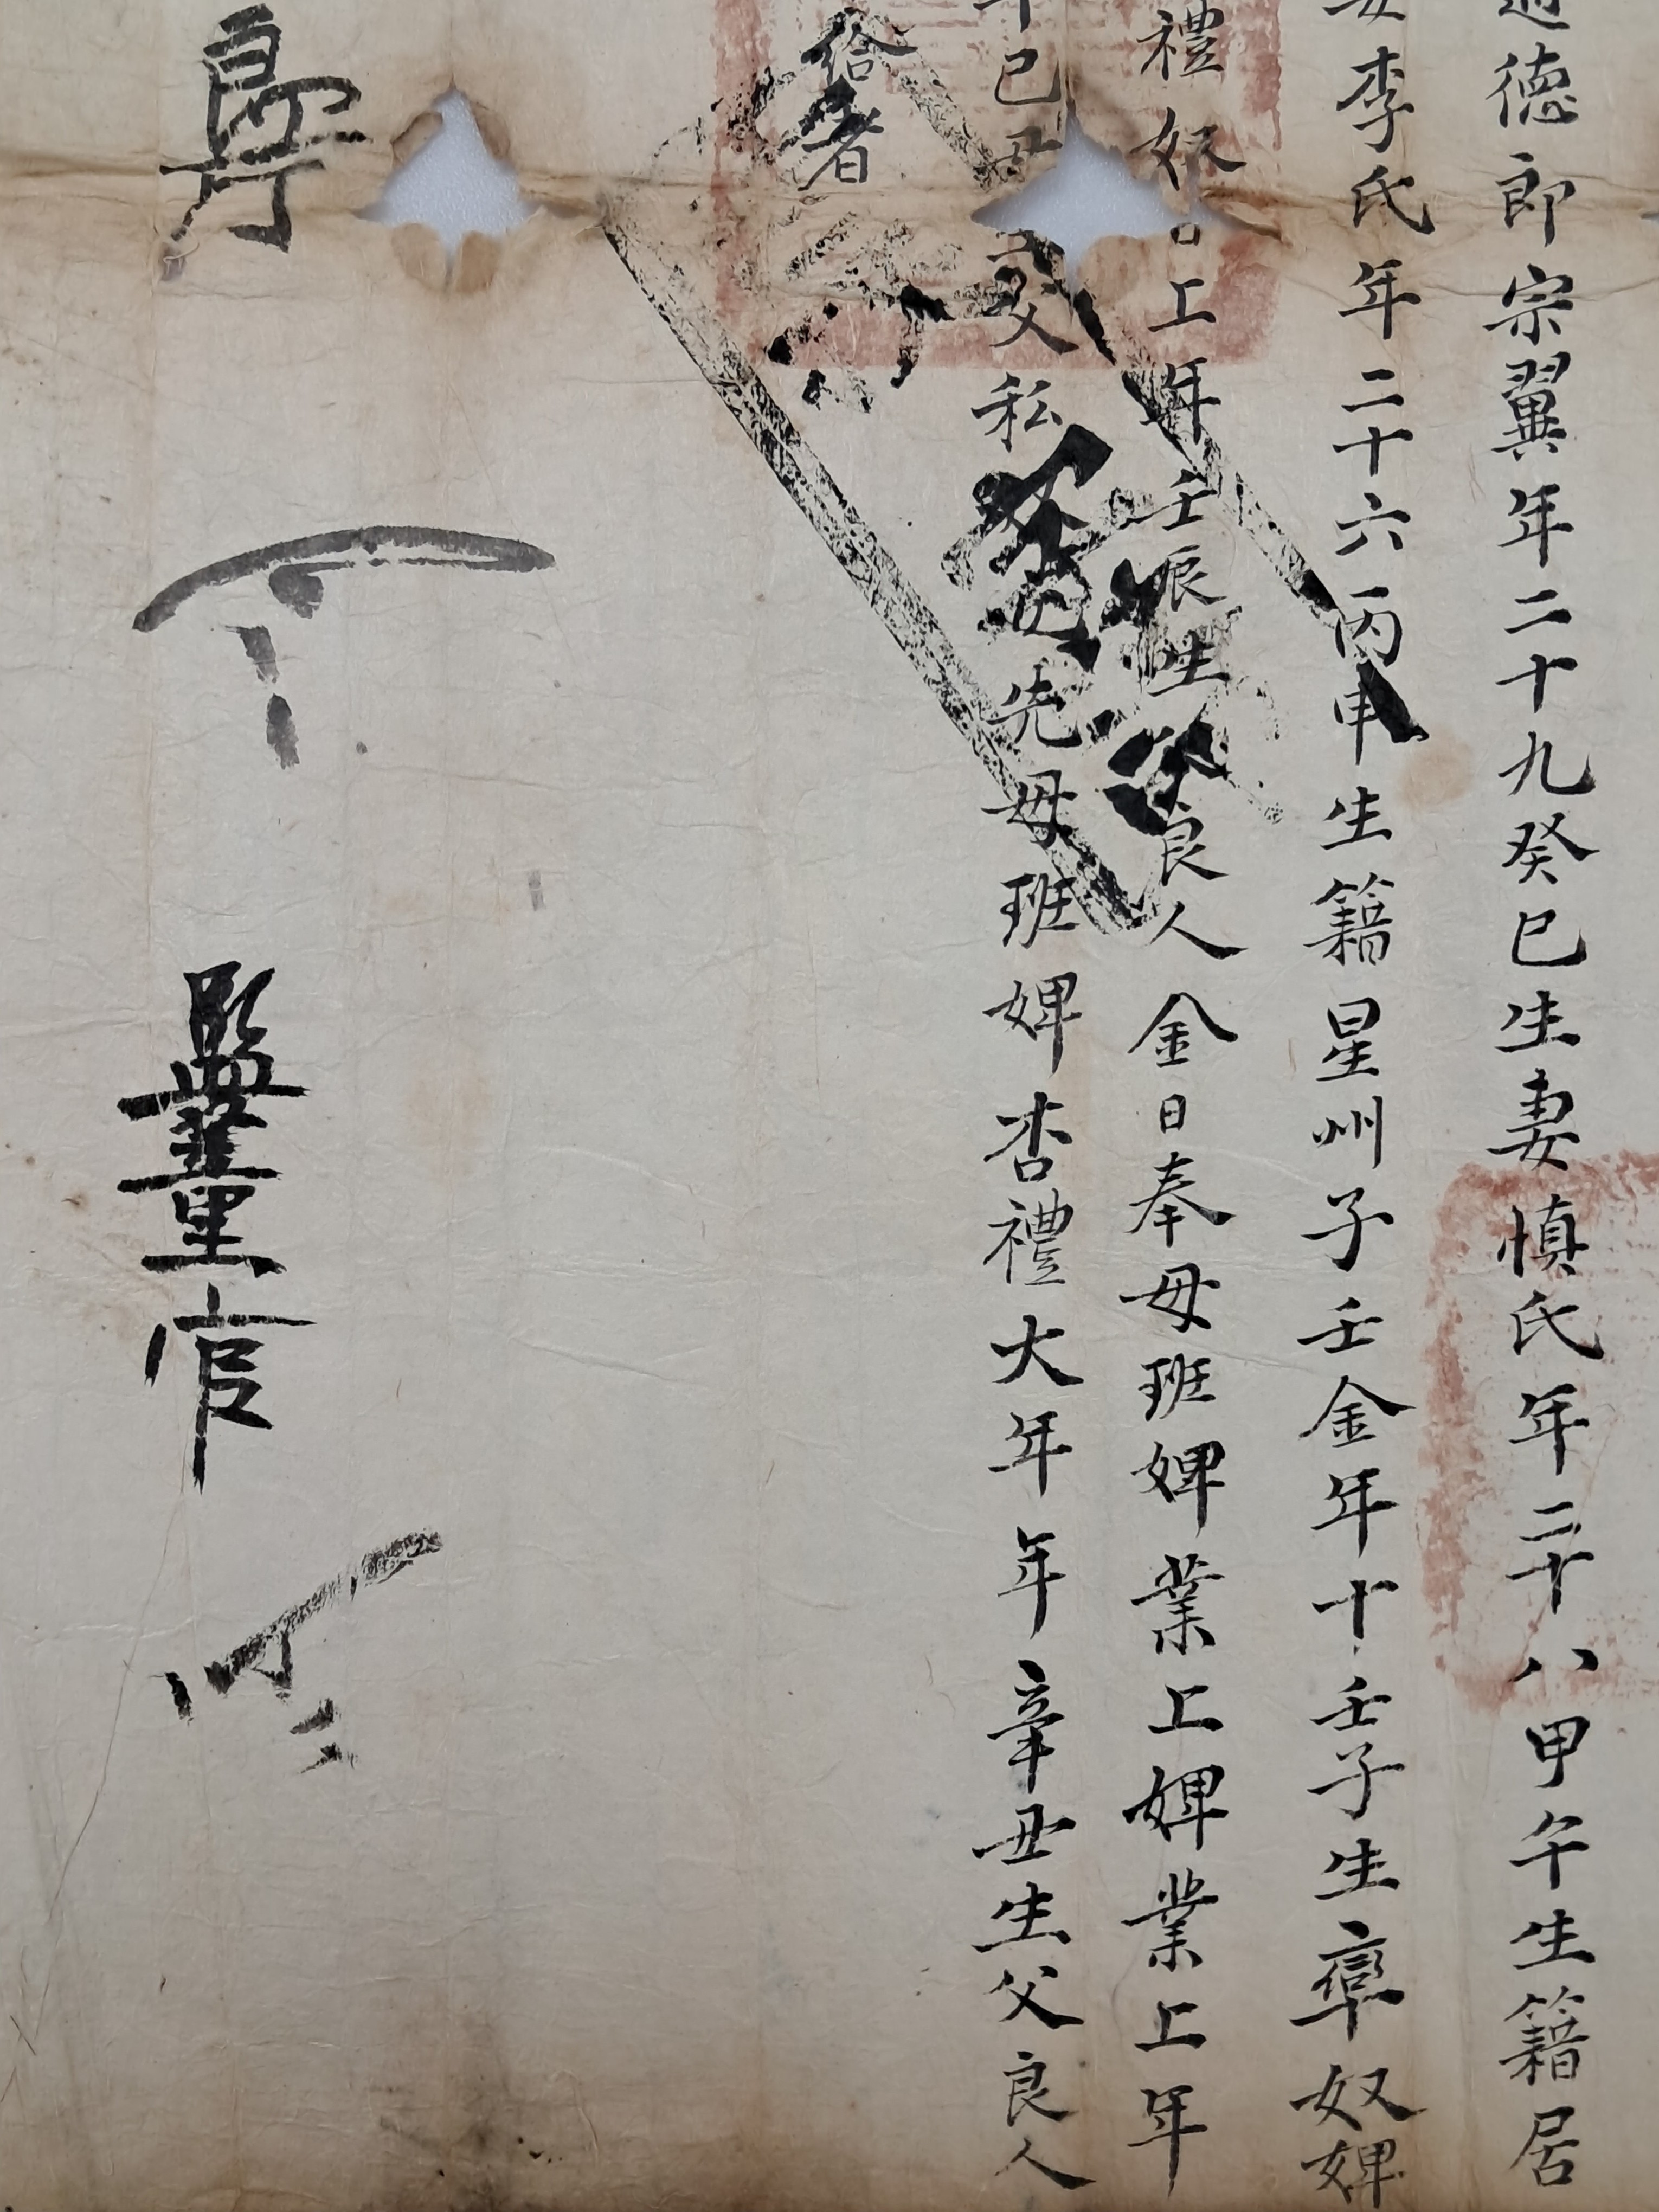 德郎宗翼年二十九癸巳生妻愼氏年二十八甲午生籍居
李氏年二十六丙申生籍星州子壬金年十壬子生率奴婢
禮奴 工年壬辰生父良人金日奉母班婢業工婢業上年
年己丑 父私奴 先母班婢杏禮大年年辛丑生父良人
給者
監董官